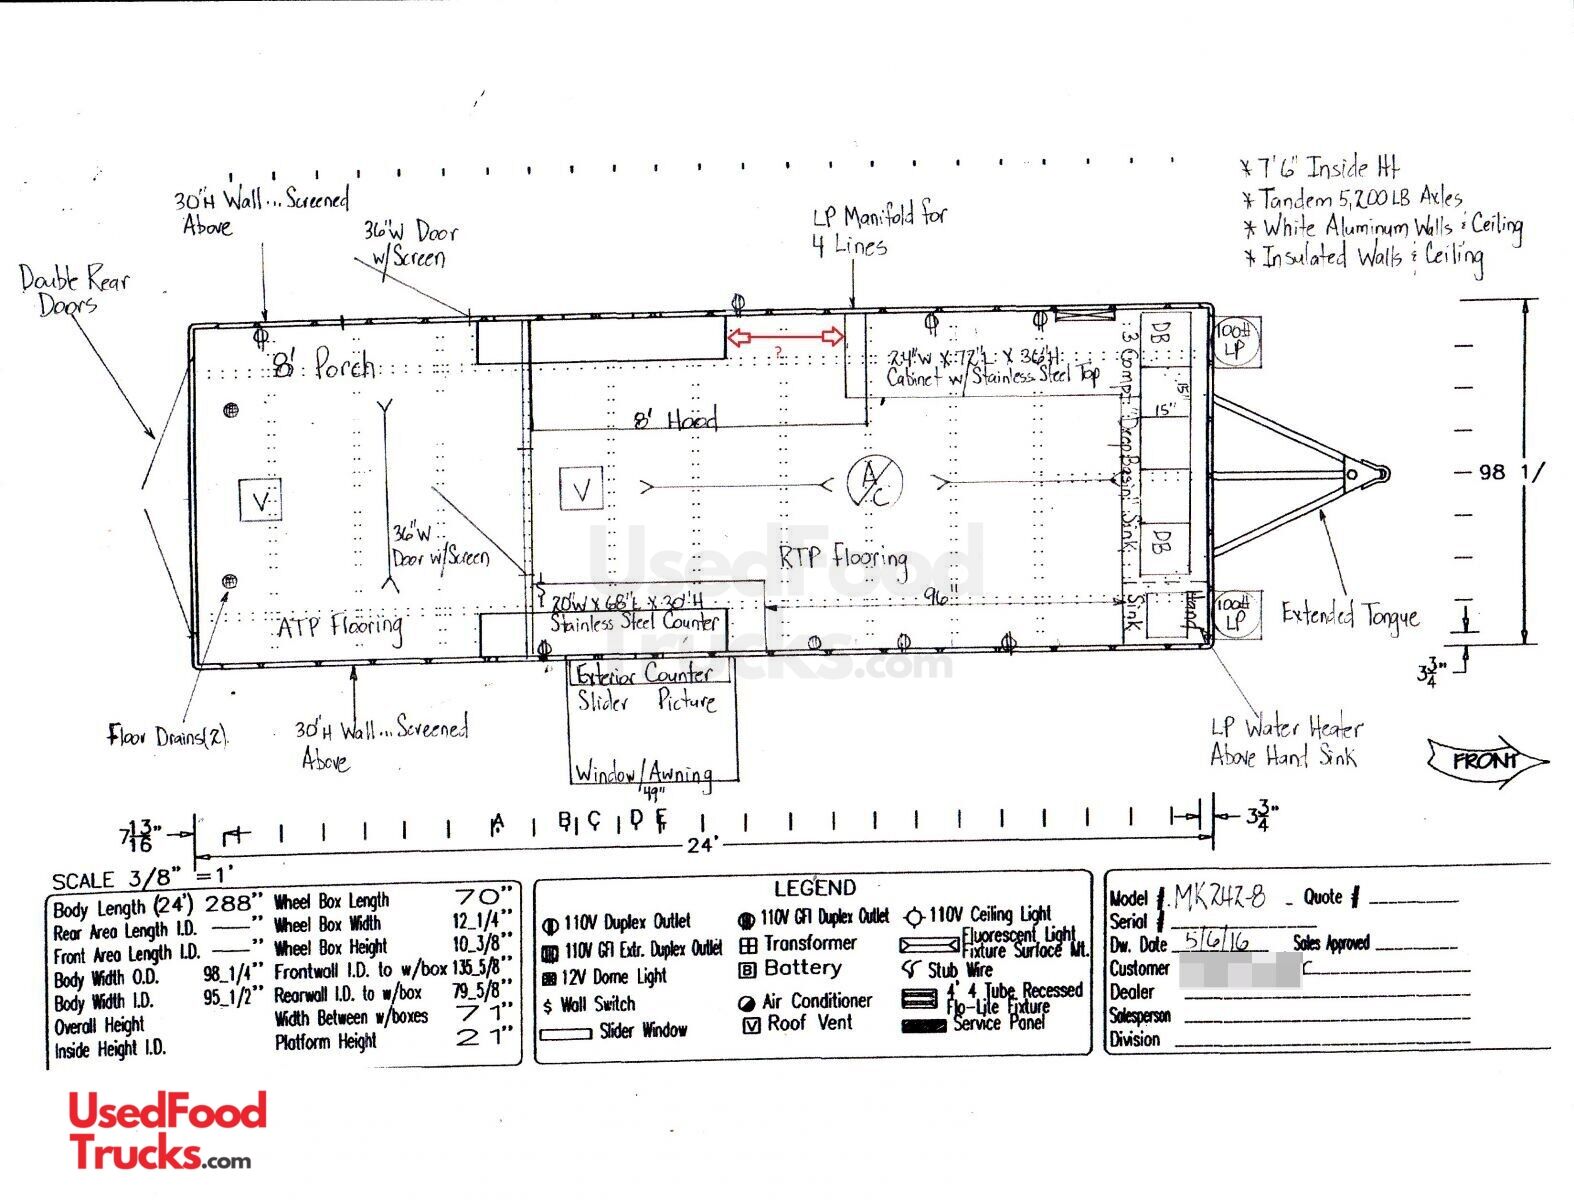 * 7'6" Inside Ht
* Tandem 5,200LB Axles
* White Aluminum Walls & Ceiling
* Insulated Walls & Ceiling
30"H Wall... Screened
Above
36"W Door
w/Screen
LP Manifold for
4 Lines
Double Rear
Doors
8' Porch
?
24"W X 72"L X 36"H
Cabinet w/Stainless Steel Top
3 Comp. Drop Basin Sink
DB
15"
15"
DB
100#
LP
8' Hood
V
V
A/C
98 1/
36"W
Door w/Screen
RTP Flooring
UsedFood
Trucks.com
96"
20"W X 68"L X 30"H
Stainless Steel Counter
ATP Flooring
Hand
Sink
100#
LP
Extended Tongue
3 3/4"
Exterior Counter
Slider Picture
Window/Awning
49"
Floor Drains(2)
30"H Wall... Screened
Above
LP Water Heater
Above Hand Sink
FRONT
7 13/16"
A B C D E
3 3/4"
24'
SCALE 3/8" =1'
Body Length (24') 288"
Rear Area Length I.D. "
Front Area Length I.D. "
Body Width O.D. 98_1/4"
Body Width I.D. 95_1/2"
Overall Height
Inside Height I.D.
Wheel Box Length 70"
Wheel Box Width 12_1/4"
Wheel Box Height 10_3/8"
Frontwall I.D. to w/box 135_5/8"
Rearwall I.D. to w/box 79_5/8"
Width Between w/boxes 71"
Platform Height 21"
LEGEND
110V Duplex Outlet
110V GFI Extr. Duplex Outlet
12V Dome Light
$ Wall Switch
Slider Window
110V GFI Duplex Outlet
Transformer
B Battery
Air Conditioner
V Roof Vent
110V Ceiling Light
Fluorescent Light
Fixture Surface Mt.
Stub Wire
4' 4 Tube Recessed
Flo-Lite Fixture
Service Panel
Model #. MK242-8 Quote #
Serial #
Dw. Date 5/6/16 Sales Approved
Customer
Dealer
Salesperson
Division
UsedFood
Trucks.com